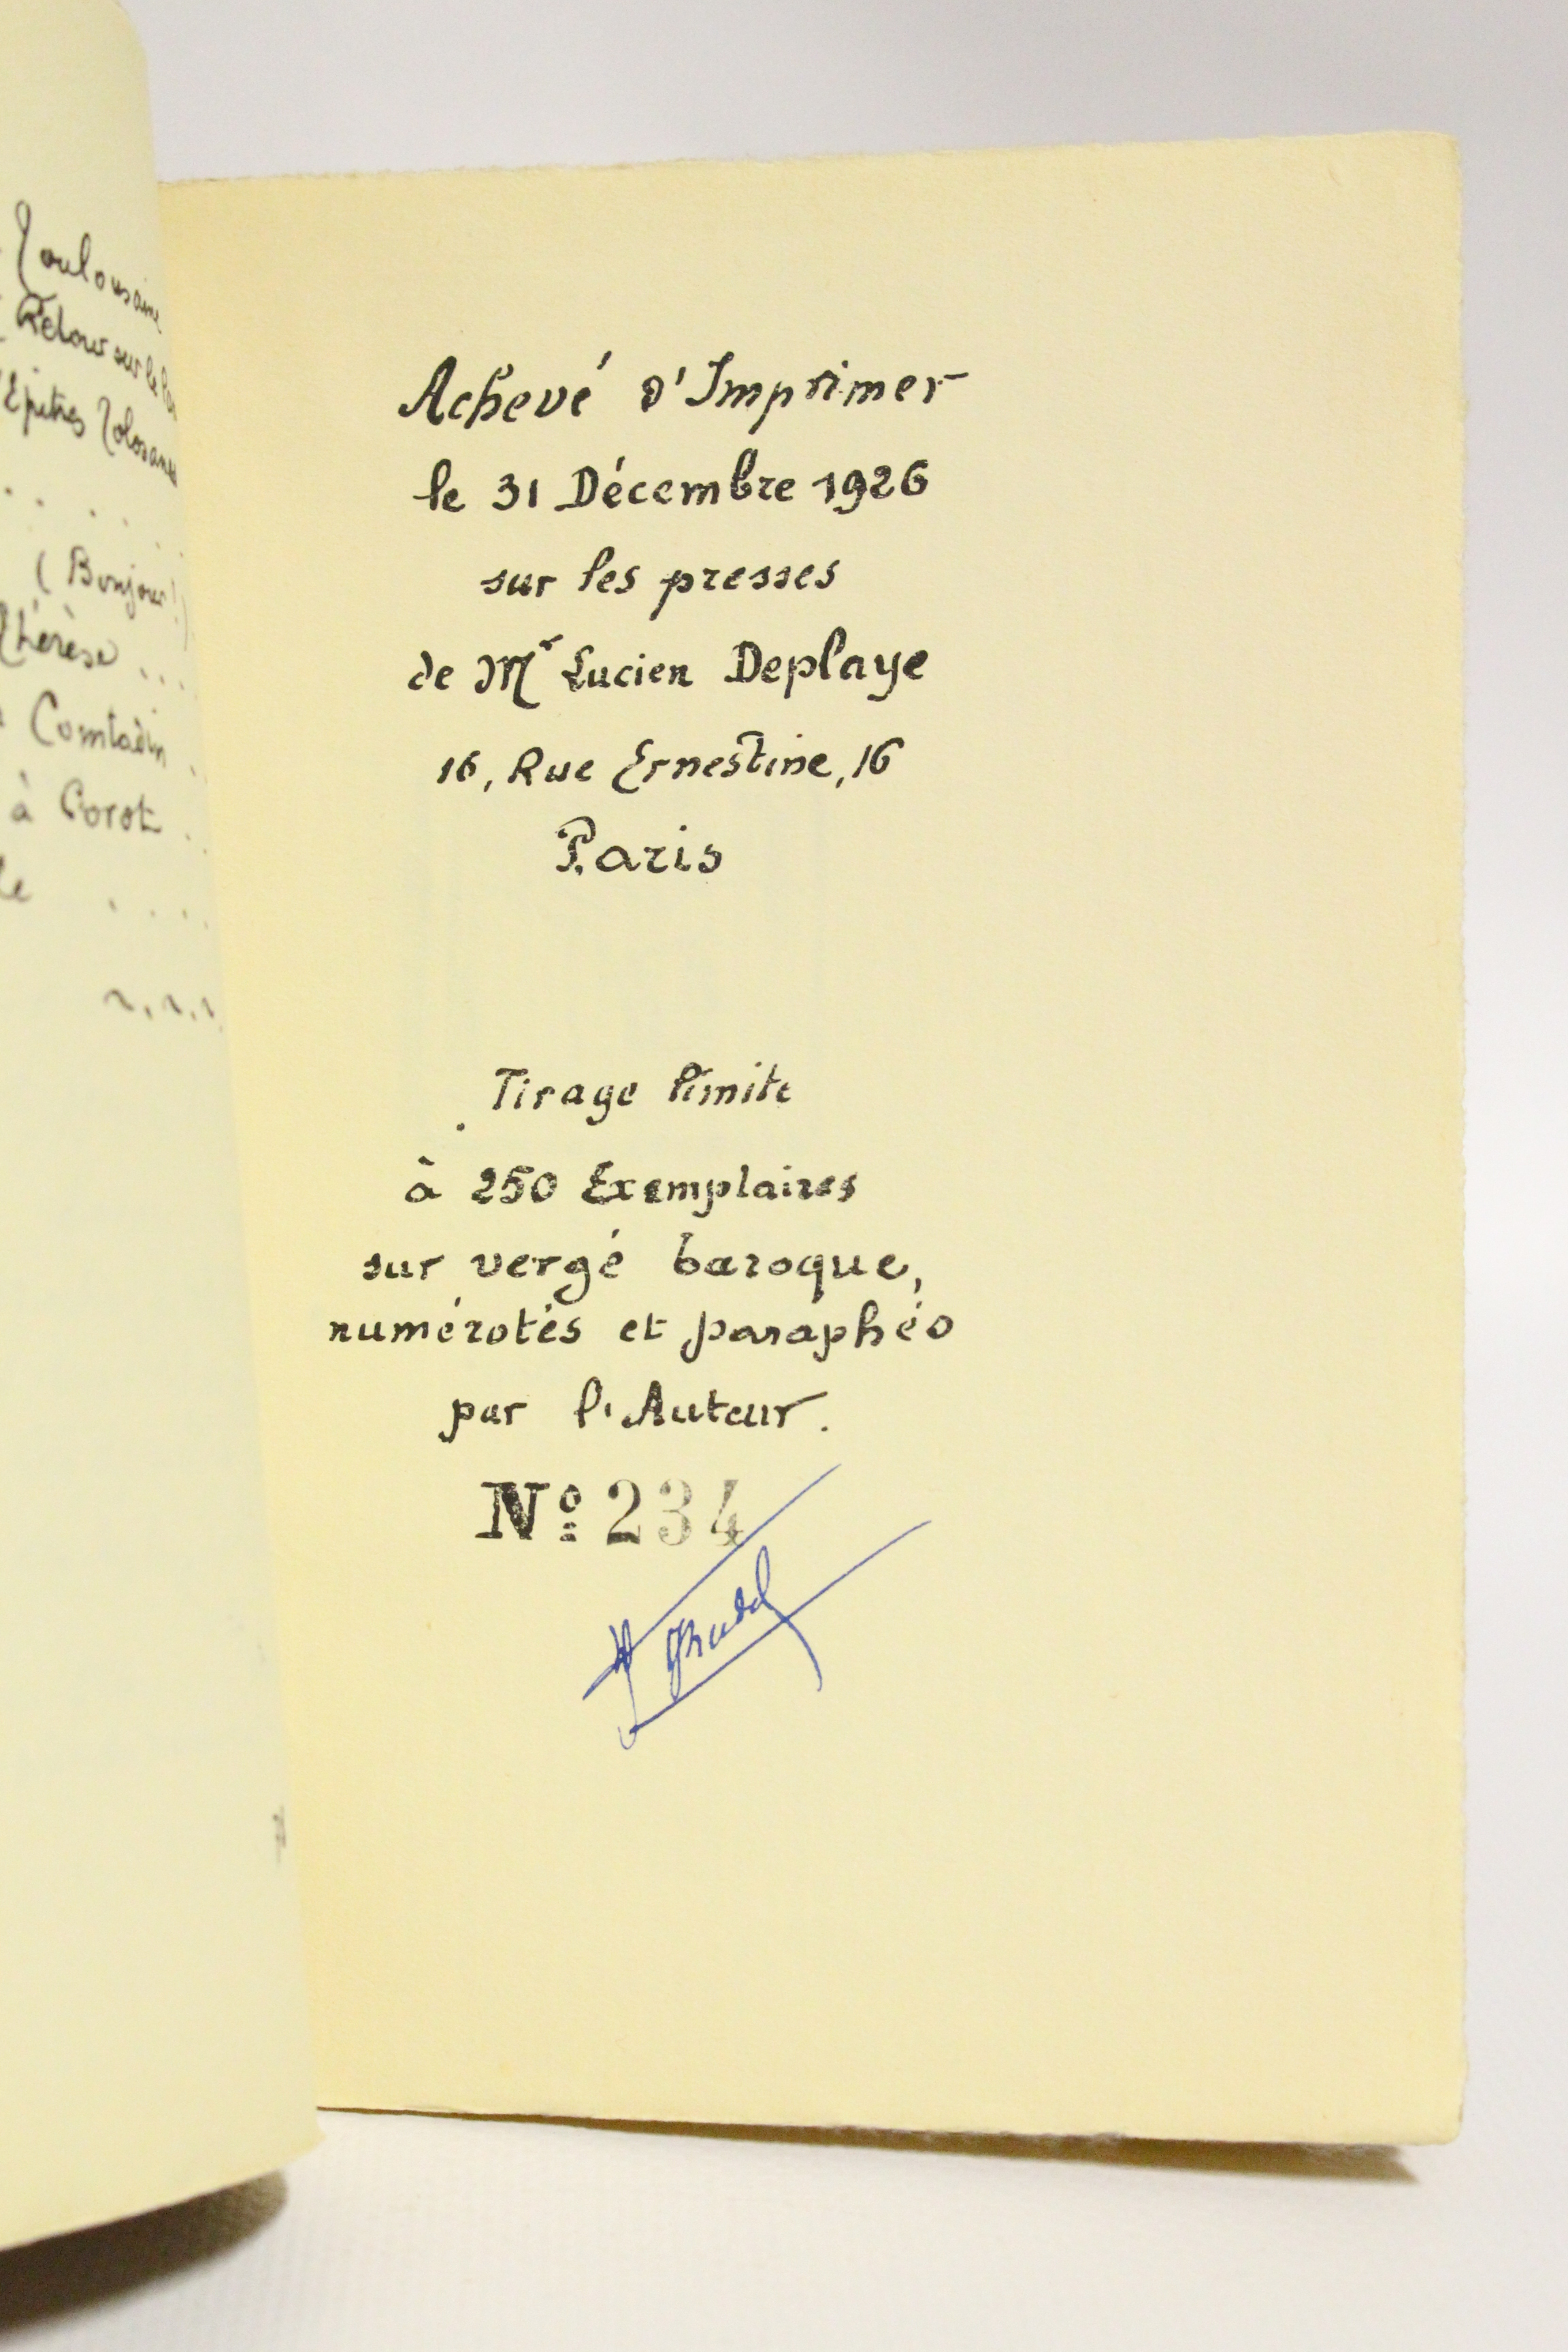 Toulousaine
Retour sur le
Epitres Tolosanes
(Bonjour!)
Thérèse ...
Comtadin
à Corot ..
Achevé d'Imprimer
le 31 Décembre 1926
sur les presses
de Mr Lucien Deplaye
16, Rue Ernestine, 16
Paris
Tirage limite
à 250 Exemplaires
sur vergé baroque,
numérotés et paraphés
par l'Auteur.
Nº 234